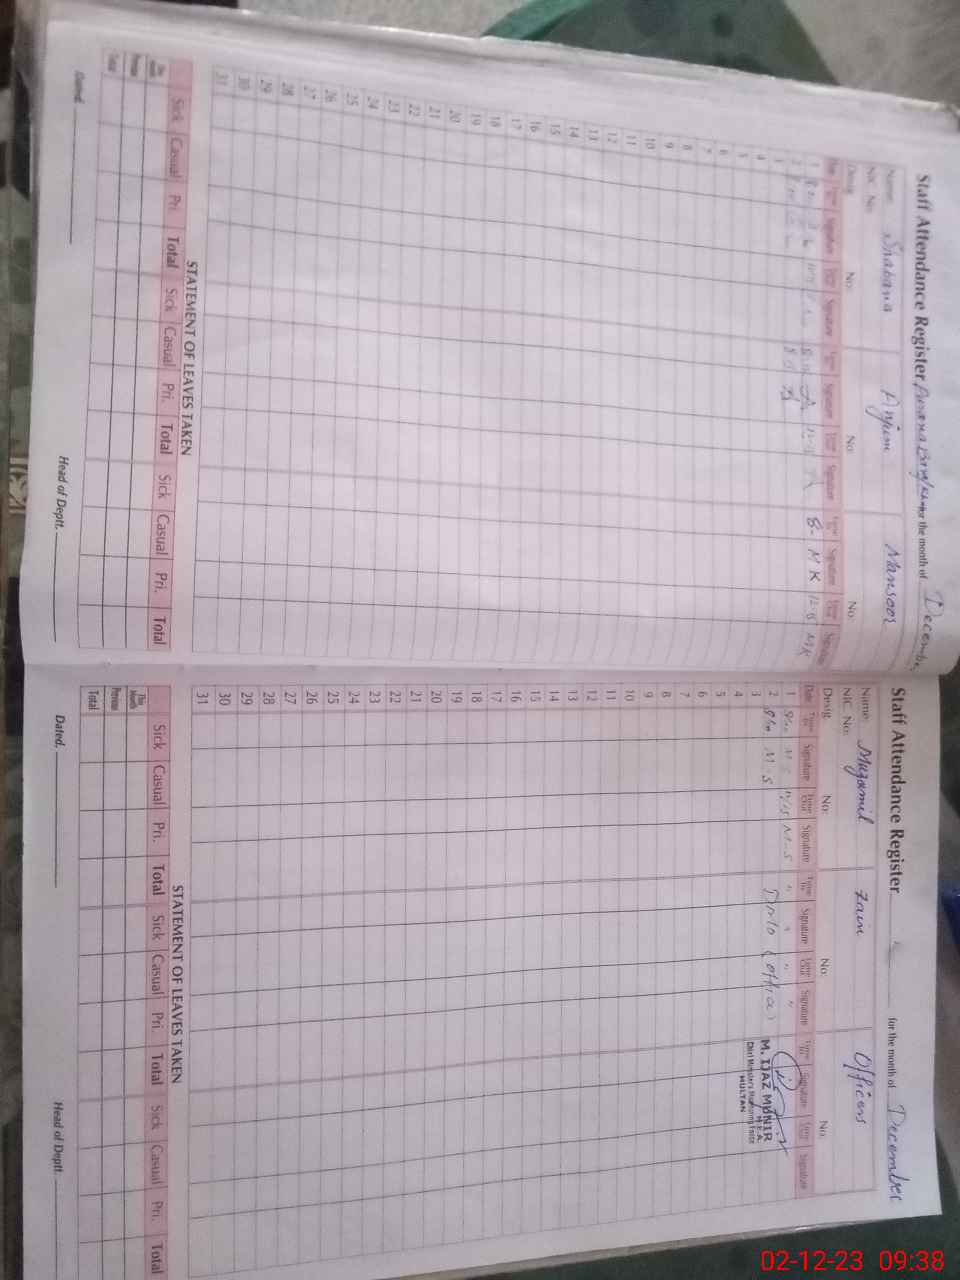 Staff Attendance Register for the month of December
Name: Shabana Anjum Mansoor
NIC. No.
Desig. No: No: No:
Date Time In Signature Time Out Signature Time In Signature Time Out Signature Time In Signature Time Out Signature
1 8- M K 12-8 MK
2
3
4
5
6
7
8
9
10
11
12
13
14
15
16
17
18
19
20
21
22
23
24
25
26
27
28
29
30
31
STATEMENT OF LEAVES TAKEN
Sick Casual Pri. Total Sick Casual Pri. Total Sick Casual Pri. Total
This Month
Previous
Total
Dated. Head of Deptt.
Staff Attendance Register for the month of December
Name: Muzamil Zain Officers
NIC. No:
Desig. No: No: No:
Date Time In Signature Time Out Signature Time In Signature Time Out Signature Time In Signature Time Out Signature
1 M-S M-S " " " "
2 M-S
3
4
5
6
7
8
9
10
11
12
13
14
15
16
17
18
19
20
21
22
23
24
25
26
27
28
29
30
31
M. IJAZ MUNIR
M.E.A.
Chief Minister's Monitoring Force
MULTAN
STATEMENT OF LEAVES TAKEN
Sick Casual Pri. Total Sick Casual Pri. Total Sick Casual Pri. Total
This Month
Previous
Total
Dated. Head of Deptt.
02-12-23 09:38